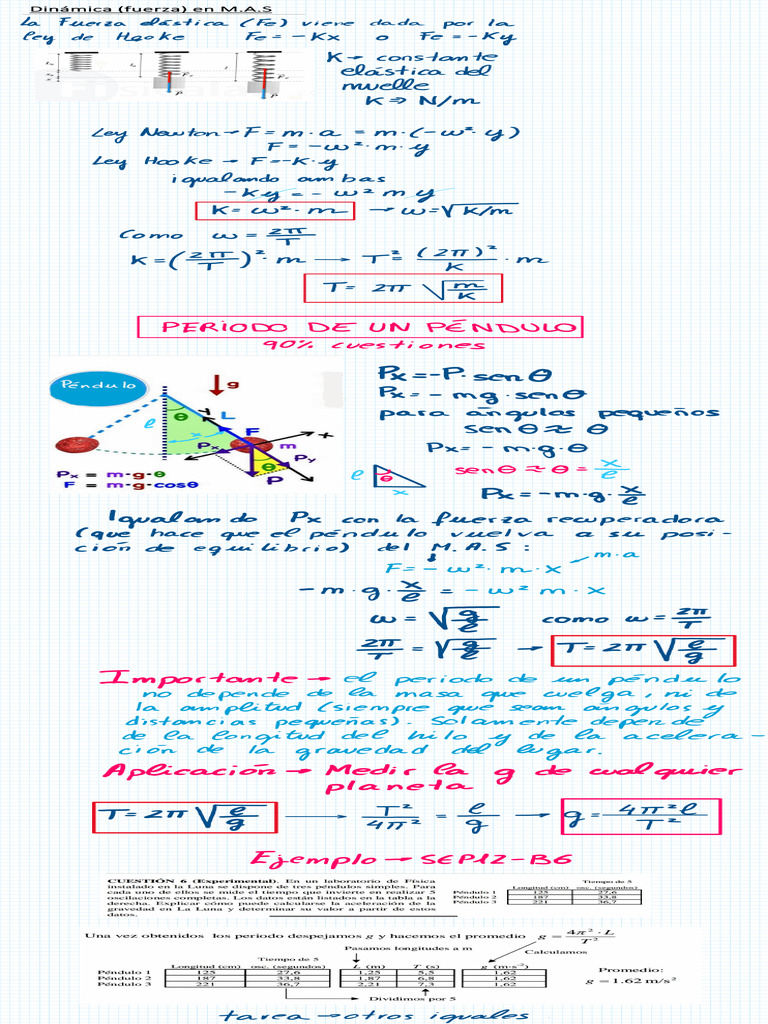 Dinámica (fuerza) en M.A.S
La Fuerza elástica (Fe) viene dada por la
ley de Hooke Fe = -Kx o Fe = -Ky
K → constante
elástica del
muelle
K ⇒ N/m
Ley Newton → F = m · a = m · (-ω² · y)
F = -ω² · m · y
Ley Hooke → F = -K · y
igualando ambas
-Ky = -ω² m y
K = ω² · m → ω = √K/m
Como ω = 2π/T
K = (2π/T)² · m → T² = (2π)²/K · m
T = 2π √m/K
PERIODO DE UN PÉNDULO
90% cuestiones
Péndulo
g
θ
L
l
F
x
x
Px
m
Py
θ
P
Px = m·g·θ
F = m·g·cosθ
Px = -P · senθ
Px = -mg · senθ
para ángulas pequeños
senθ ≈ θ
Px = -m·g·θ
l θ x
senθ ≈ θ = x/l
Px = -m·g· x/l
Igualando Px con la fuerza recuperadora
(que hace que el péndulo vuelva a su posi-
ción de equilibrio) del M.A.S :
F = -ω² · m · x
m·a
-m·g· x/l = -ω² m · x
ω = √g/l como ω = 2π/T
2π/T = √g/l → T = 2π √l/g
Importante → el periodo de un péndulo
no depende de la masa que cuelga, ni de
la amplitud (siempre que sean ángulos y
distancias pequeñas). Solamente depende
de la longitud del hilo y de la acelera-
ción de la gravedad del lugar.
Aplicación → Medir la g de cualquier
planeta
T = 2π √l/g → T²/4π² = l/g → g = 4π²l/T²
Ejemplo → SEP12-B6
CUESTIÓN 6 (Experimental). En un laboratorio de Física
instalado en la Luna se dispone de tres péndulos simples. Para
cada uno de ellos se mide el tiempo que invierto en realizar 5
oscilaciones completas. Los datos están listados en la tabla a la
derecha. Explicar cómo puede calcularse la aceleración de la
gravedad en La Luna y determinar su valor a partir de estos
datos.
Tiempo de 5
Longitud (cm) osc. (segundos)
Péndulo 1 125 27,6
Péndulo 2 187 33,8
Péndulo 3 221 36,7
Una vez obtenidos los periodo despejamos g y hacemos el promedio g = 4π² · L / T²
Pasamos longitudes a m
Calculamos
Tiempo de 5
Longitud (cm) osc. (segundos) L (m) T (s) g (m·s⁻²)
Péndulo 1 125 27,6 1,25 5,5 1,62
Péndulo 2 187 33,8 1,87 6,8 1,62
Péndulo 3 221 36,7 2,21 7,3 1,62
Promedio:
g = 1.62 m/s²
Dividimos por 5
tarea → otros iguales